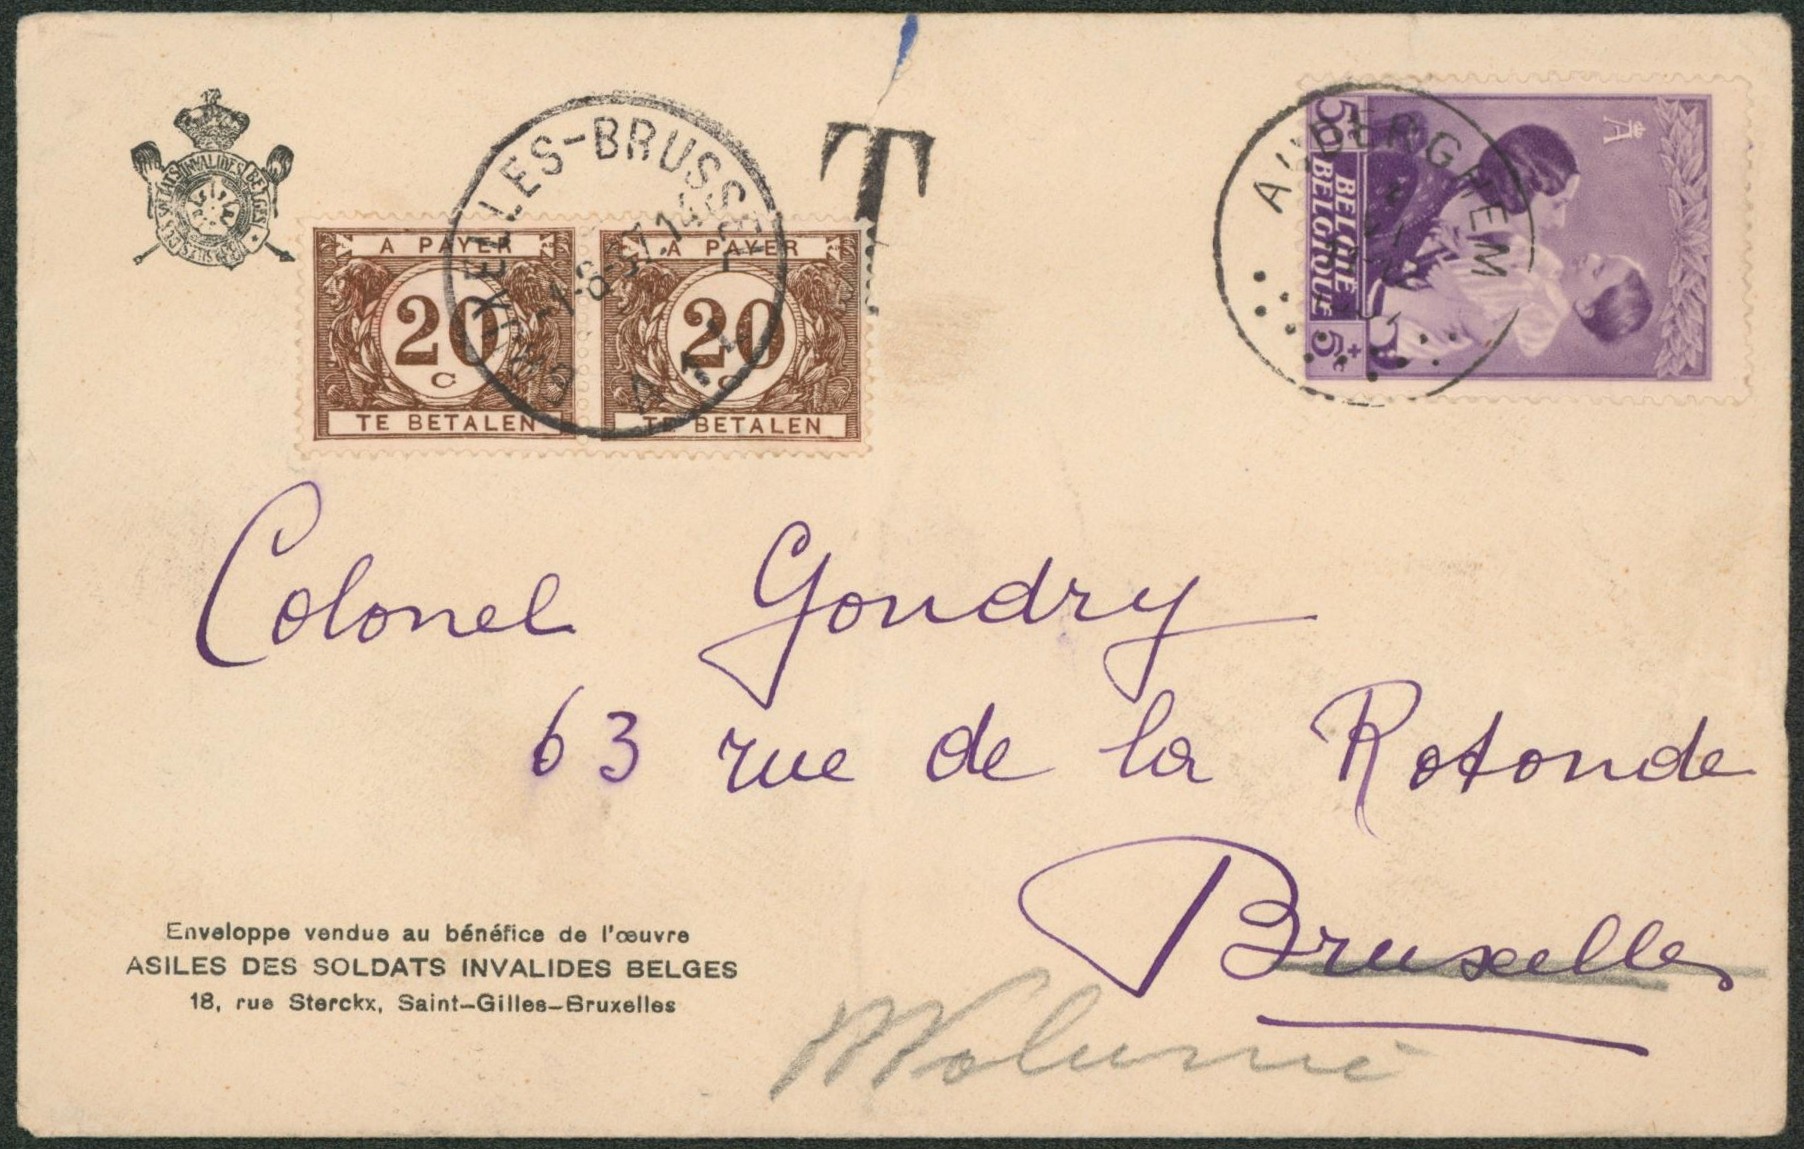 ASILES DES SOLDATS INVALIDES BELGES
BRUXELLES-BRUSSEL
T
AUDERGHEM
A PAYER
20
c
TE BETALEN
A PAYER
20
c
TE BETALEN
5c
BELGIË
BELGIQUE
5c
+
Colonel Gondry
63 rue de la Rotonde
Bruxelles
Enveloppe vendue au bénéfice de l'œuvre
ASILES DES SOLDATS INVALIDES BELGES
18, rue Sterckx, Saint-Gilles-Bruxelles